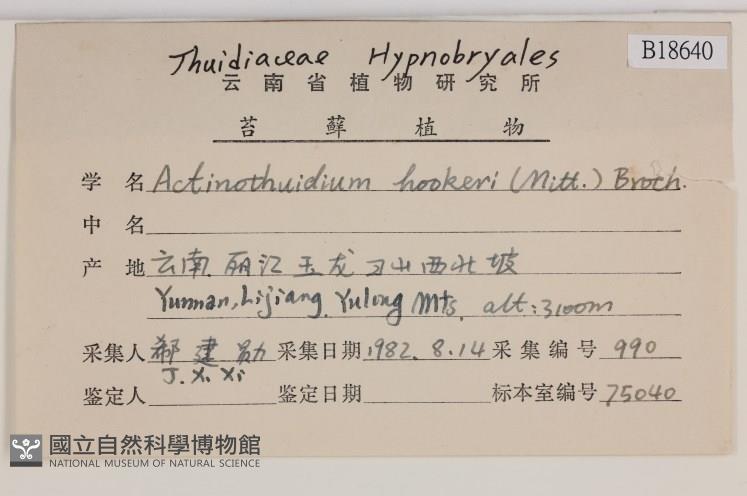 Thuidiaceae Hypnobryales
B18640
云南省植物研究所
苔藓植物
学名 Actinothuidium hookeri (Mitt.) Broth.
中名
产地 云南 丽江 玉龙 山 西北坡
Yunnan, Lijiang, Yulong Mts, alt: 3100m
采集人 郗建勋 采集日期 1982.8.14 采集编号 990
J. X. Xi
鉴定人 鉴定日期 标本室编号 75040
國立自然科學博物館
NATIONAL MUSEUM OF NATURAL SCIENCE